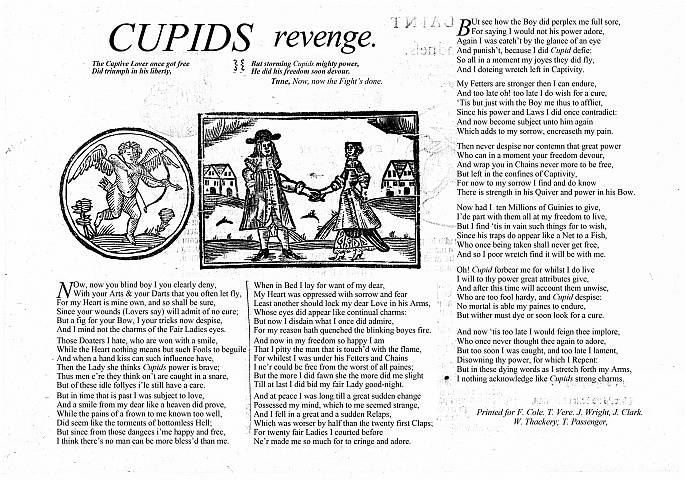 CUPIDS revenge.
The Captive Lover once got free
Did triumph in his liberty,
But storming Cupids mighty power,
He did his freedom soon devour.
Tune, Now, now the Fight's done.
NOw, now you blind boy I you clearly deny,
With your Arts & your Darts that you often let fly,
For my Heart is mine own, and so shall be sure,
Since your wounds (Lovers say) will admit of no cure;
But a fig for your Bow, I your tricks now despise,
And I mind not the charms of the Fair Ladies eyes.
Those Doaters I hate, who are won with a smile,
While the Heart nothing means but such Fools to beguile
And when a hand kiss can such influence have,
Then the Lady she thinks Cupids power is brave;
Thus men e're they think on't are caught in a snare,
But of these idle follyes i'le still have a care.
But in time that is past I was subject to love,
And a smile from my dear like a heaven did prove,
While the pains of a frown to me known too well,
Did seem like the torments of bottomless Hell;
But since from those dangees i'me happy and free,
I think there's no man can be more bless'd than me.
When in Bed I lay for want of my dear,
My Heart was oppressed with sorrow and fear
Least another should lock my dear Love in his Arms,
Whose eyes did appear like continual charms:
But now I disdain what I once did admire,
For my reason hath quenched the blinking boyes fire.
And now in my freedom so happy I am
That I pitty the man that is touch'd with the flame,
For whilest I was under his Fetters and Chains
I ne'r could be free from the worst of all paines;
But the more I did fawn she the more did me slight
Till at last I did bid my fair Lady good-night.
And at peace I was long till a great sudden change
Possessed my mind, which to me seemed strange,
And I fell in a great and a sudden Relaps,
Which was worser by half than the twenty first Claps;
For twenty fair Ladies I courted before
Ne'r made me so much for to cringe and adore.
BUt see how the Boy did perplex me full sore,
For saying I would not his power adore,
Again I was catch't by the glance of an eye
And punish't, because I did Cupid defie:
So all in a moment my joyes they did fly,
And I doteing wretch left in Captivity.
My Fetters are stronger then I can endure,
And too late oh! too late I do wish for a cure,
'Tis but just with the Boy me thus to afflict,
Since his power and Laws I did once contradict:
And now become subject unto him again
Which adds to my sorrow, encreaseth my pain.
Then never despise nor contemn that great power
Who can in a moment your freedom devour,
And wrap you in Chains never more to be free,
But left in the confines of Captivity,
For now to my sorrow I find and do know
There is strength in his Quiver and power in his Bow.
Now had I ten Millions of Guinies to give,
I'de part with them all at my freedom to live,
But I find 'tis in vain such things for to wish,
Since his traps do appear like a Net to a Fish,
Who once being taken shall never get free,
And so I poor wretch find it will be with me.
Oh! Cupid forbear me for whilst I do live
I will to thy power great attributes give,
And after this time will account them unwise,
Who are too fool hardy, and Cupid despise:
No mortal is able my paines to endure,
But wither must dye or soon look for a cure.
And now 'tis too late I would feign thee implore,
Who once never thought thee again to adore,
But too soon I was caught, and too late I lament,
Disowning thy power, for which I Repent:
But in these dying words as I stretch forth my Arms,
I nothing acknowledge like Cupids strong charms.
Printed for F. Cole. T. Vere. J. Wright, J. Clark.
W. Thackery; T. Passenger,